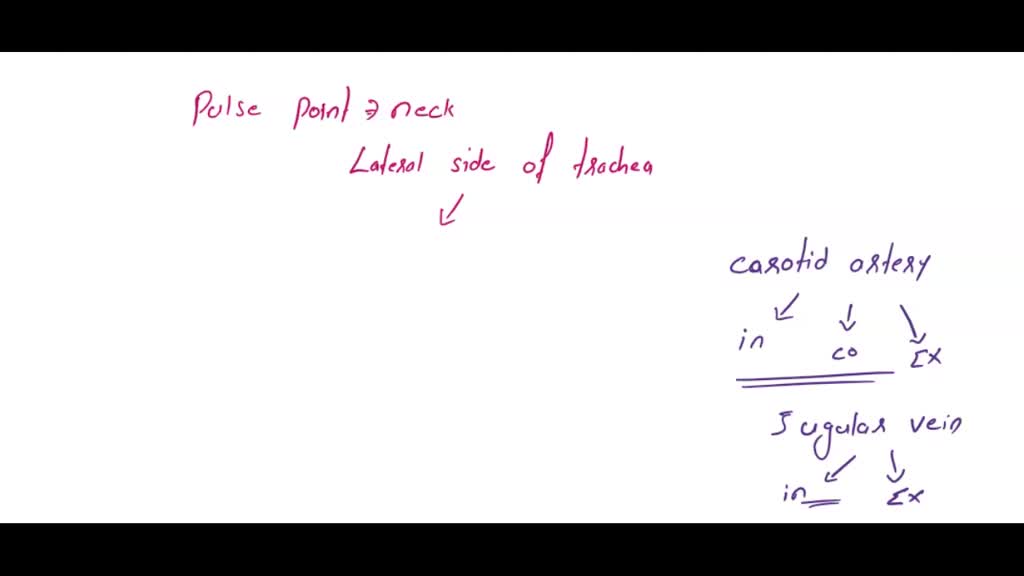 Pulse point → neck
Lateral side of trachea
carotid artery
in co Ex
Jugular vein
in Ex